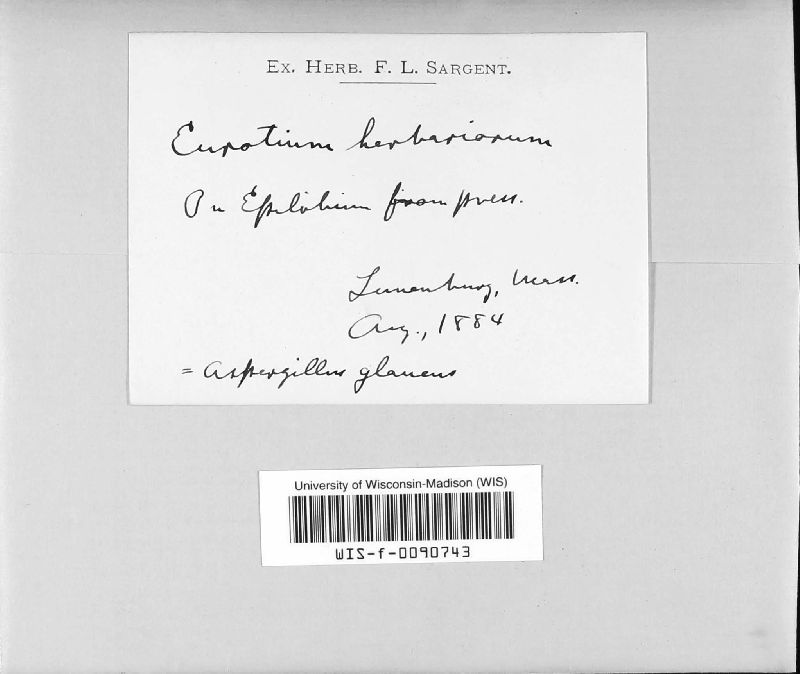 Ex. Herb. F. L. Sargent.
Eurotium herbariorum
On Epilobium from press.
Lunenburg, Mass.
Aug., 1884
= Aspergillus glaucus
University of Wisconsin-Madison (WIS)
WIS-f-0090743